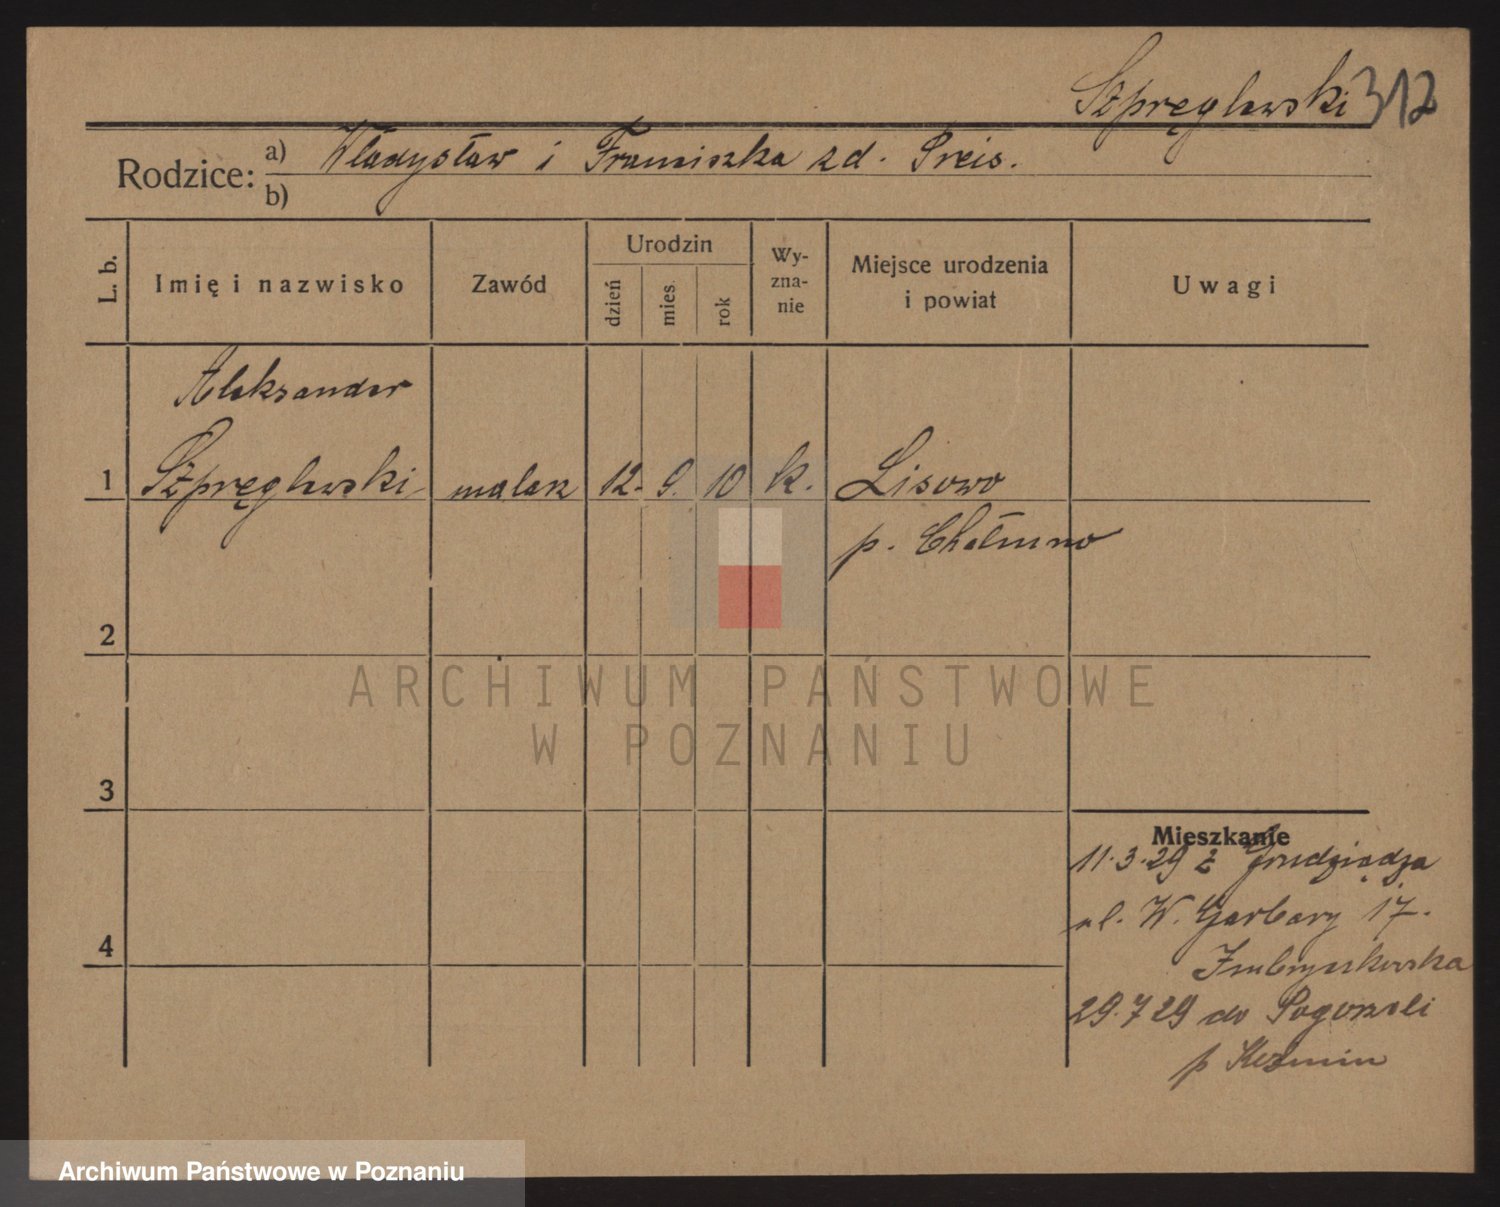 Szpręglewski 312
Rodzice: a) Władysław i Franciszka zd. Preis.
b)
L. b.
Imię i nazwisko
Zawód
Urodzin
dzień
mies.
rok
Wy-
zna-
nie
Miejsce urodzenia
i powiat
Uwagi
Aleksander
1 Szpręglewski malarz 12. 9. 10 k. Lisowo
p. Chełmno
2
3
4
ARCHIWUM PAŃSTWOWE
W POZNANIU
Mieszkanie
11.3.29 z Grudziądza
ul. W. Garbary 17.
29.7 29 do Pogorzeli
p Koźmin
Archiwum Państwowe w Poznaniu